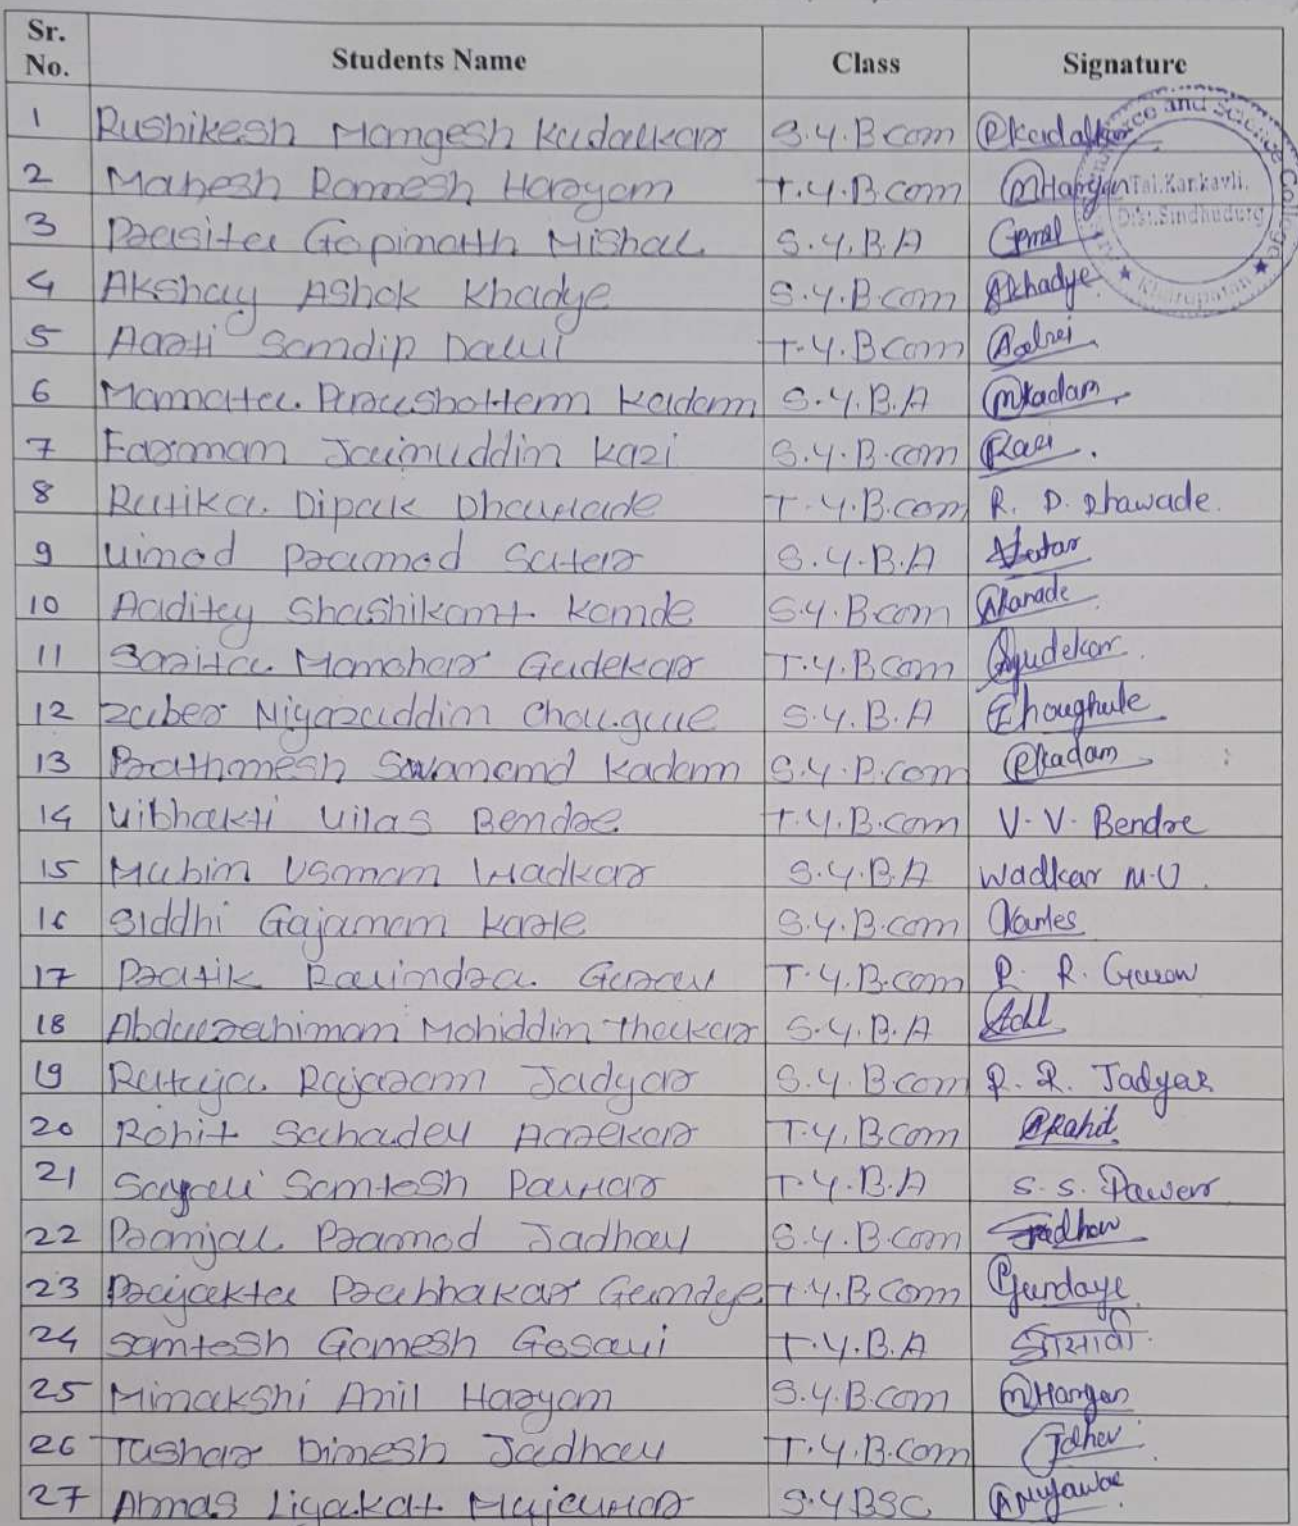 Sr. No. Students Name Class Signature
1 Rushikesh Mangesh Kudalkar S.Y.B.com Rkudalkar
2 Mahesh Ramesh Haryan T.Y.B.com MHaryan
3 Prasita Gopinath Mishal S.Y.B.A
4 Akshay Ashok Khadye S.Y.B.com Akhadye
5 Aarti Sandip Dalvi T.Y.Bcom
6 Mamata Purushottam Kadam S.Y.B.A Mkadam
7 Farman Jainuddin Kazi S.Y.B.com
8 Rutika Dipak Dhawade T.Y.B.com R. D. Dhawade.
9 Vinod Pramod Sutar S.Y.B.A
10 Aaditey Shashikant Kande S.Y.Bcom
11 Sarita Manohar Gudekar T.Y.Bcom Gudekar.
12 Zuber Niyazuddin Chougule S.Y.B.A
13 Prathmesh Kadam S.Y.B.com Pkadam
14 Vibhakti Vilas Bendre T.Y.B.com V. V. Bendre
15 Mubin Usman Wadkar S.Y.B.A Wadkar M.U.
16 Siddhi Gajanan Karle S.Y.B.com
17 Pratik Ravindra Gurav T.Y.B.com P. R. Gurav
18 Abdulrahiman Mohiddin Thakar S.Y.B.A
19 Rutuja Rajaram Jadyar S.Y.Bcom R. R. Jadyar
20 Rohit Sahadev Aarekar T.Y.B.com
21 Sayali Santosh Pawar T.Y.B.A S. S. Pawar
22 Pranjal Pramod Jadhav S.Y.B.com Jadhav
23 Prajakta Prabhakar Gundye T.Y.B.com
24 Santosh Ganesh Gosavi T.Y.B.A गोसावी
25 Minakshi Anil Haryan S.Y.B.com
26 Tushar Dinesh Jadhav T.Y.B.com
27 Almas Liyakat Mujawar S.Y.BSC
Tal.Kankavli.
Dist.Sindhudurg
Kharepatan